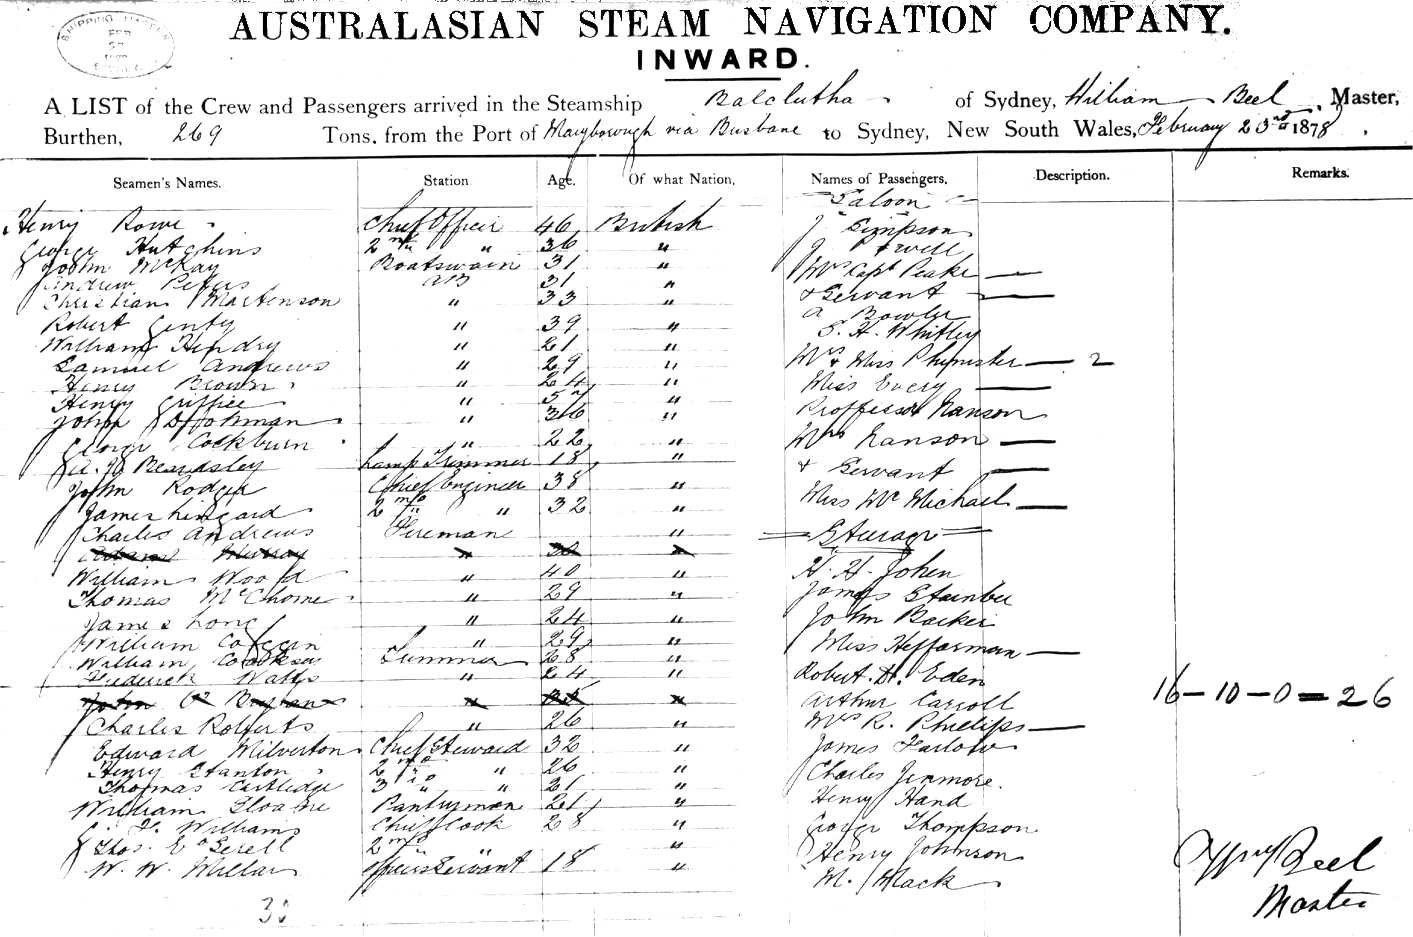 AUSTRALASIAN STEAM NAVIGATION COMPANY.
INWARD.
A LIST of the Crew and Passengers arrived in the Steamship Balclutha of Sydney, William Beel, Master,
Burthen, 269 Tons, from the Port of Maryborough via Brisbane to Sydney, New South Wales, February 23rd 1878
Seamen's Names. Station Age. Of what Nation, Names of Passengers. Description. Remarks.
Henry Rowe Chief Officer 46 British
George Hutchins 2nd " " 36 "
John McKay Boatswain 31 "
Andrew Peters AB 31 "
Christian Martenson " 33 "
Robert Genty " 39 "
William Hendry " 21 "
Samuel Andrews " 29 "
Henry Brown " 24 "
Henry Griffice " "
John " 36 "
George Cockburn " 22 "
Beardsley Lamp Trimmer 18 "
John Rodger Chief Engineer 38 "
James Lingard 2nd " " 32 "
Charles Andrews Fireman "
Murray " "
William Wood " 40 "
Thomas " 29 "
James Long " 24 "
William " 29 "
William Cooksey 28 "
Frederick Watts " 24 "
John " "
Charles Roberts " 26 "
Edward Milverton Chief Steward 32 "
Henry Stanton 2nd " 26 "
Thomas Cartledge 3 " " 21 "
William Sloane Pantryman 21 "
Williams Chief Cook 28 "
Thos. 2nd " "
W. W. Millar Officers Servant 18 "
30
Saloon
J Simpson
J Powell
Mrs Capt Peake —
& Servant —
A Bowler
S. H. Whitley
Mrs & Miss Phymister — 2
Miss Every —
Proffessor Nanson
Mrs Nanson —
& Servant —
Miss Mc Michael —
Steerage
H. H. John
James
John Barker
Miss Heffernan —
Robert. D. Eden
Arthur Carroll
Mrs R. Phillips —
James Farlow
Charles Jenmore.
Henry Hand
George Thompson
Henry Johnson
M. Mack
16—10—0=26
Wm Beel
Master